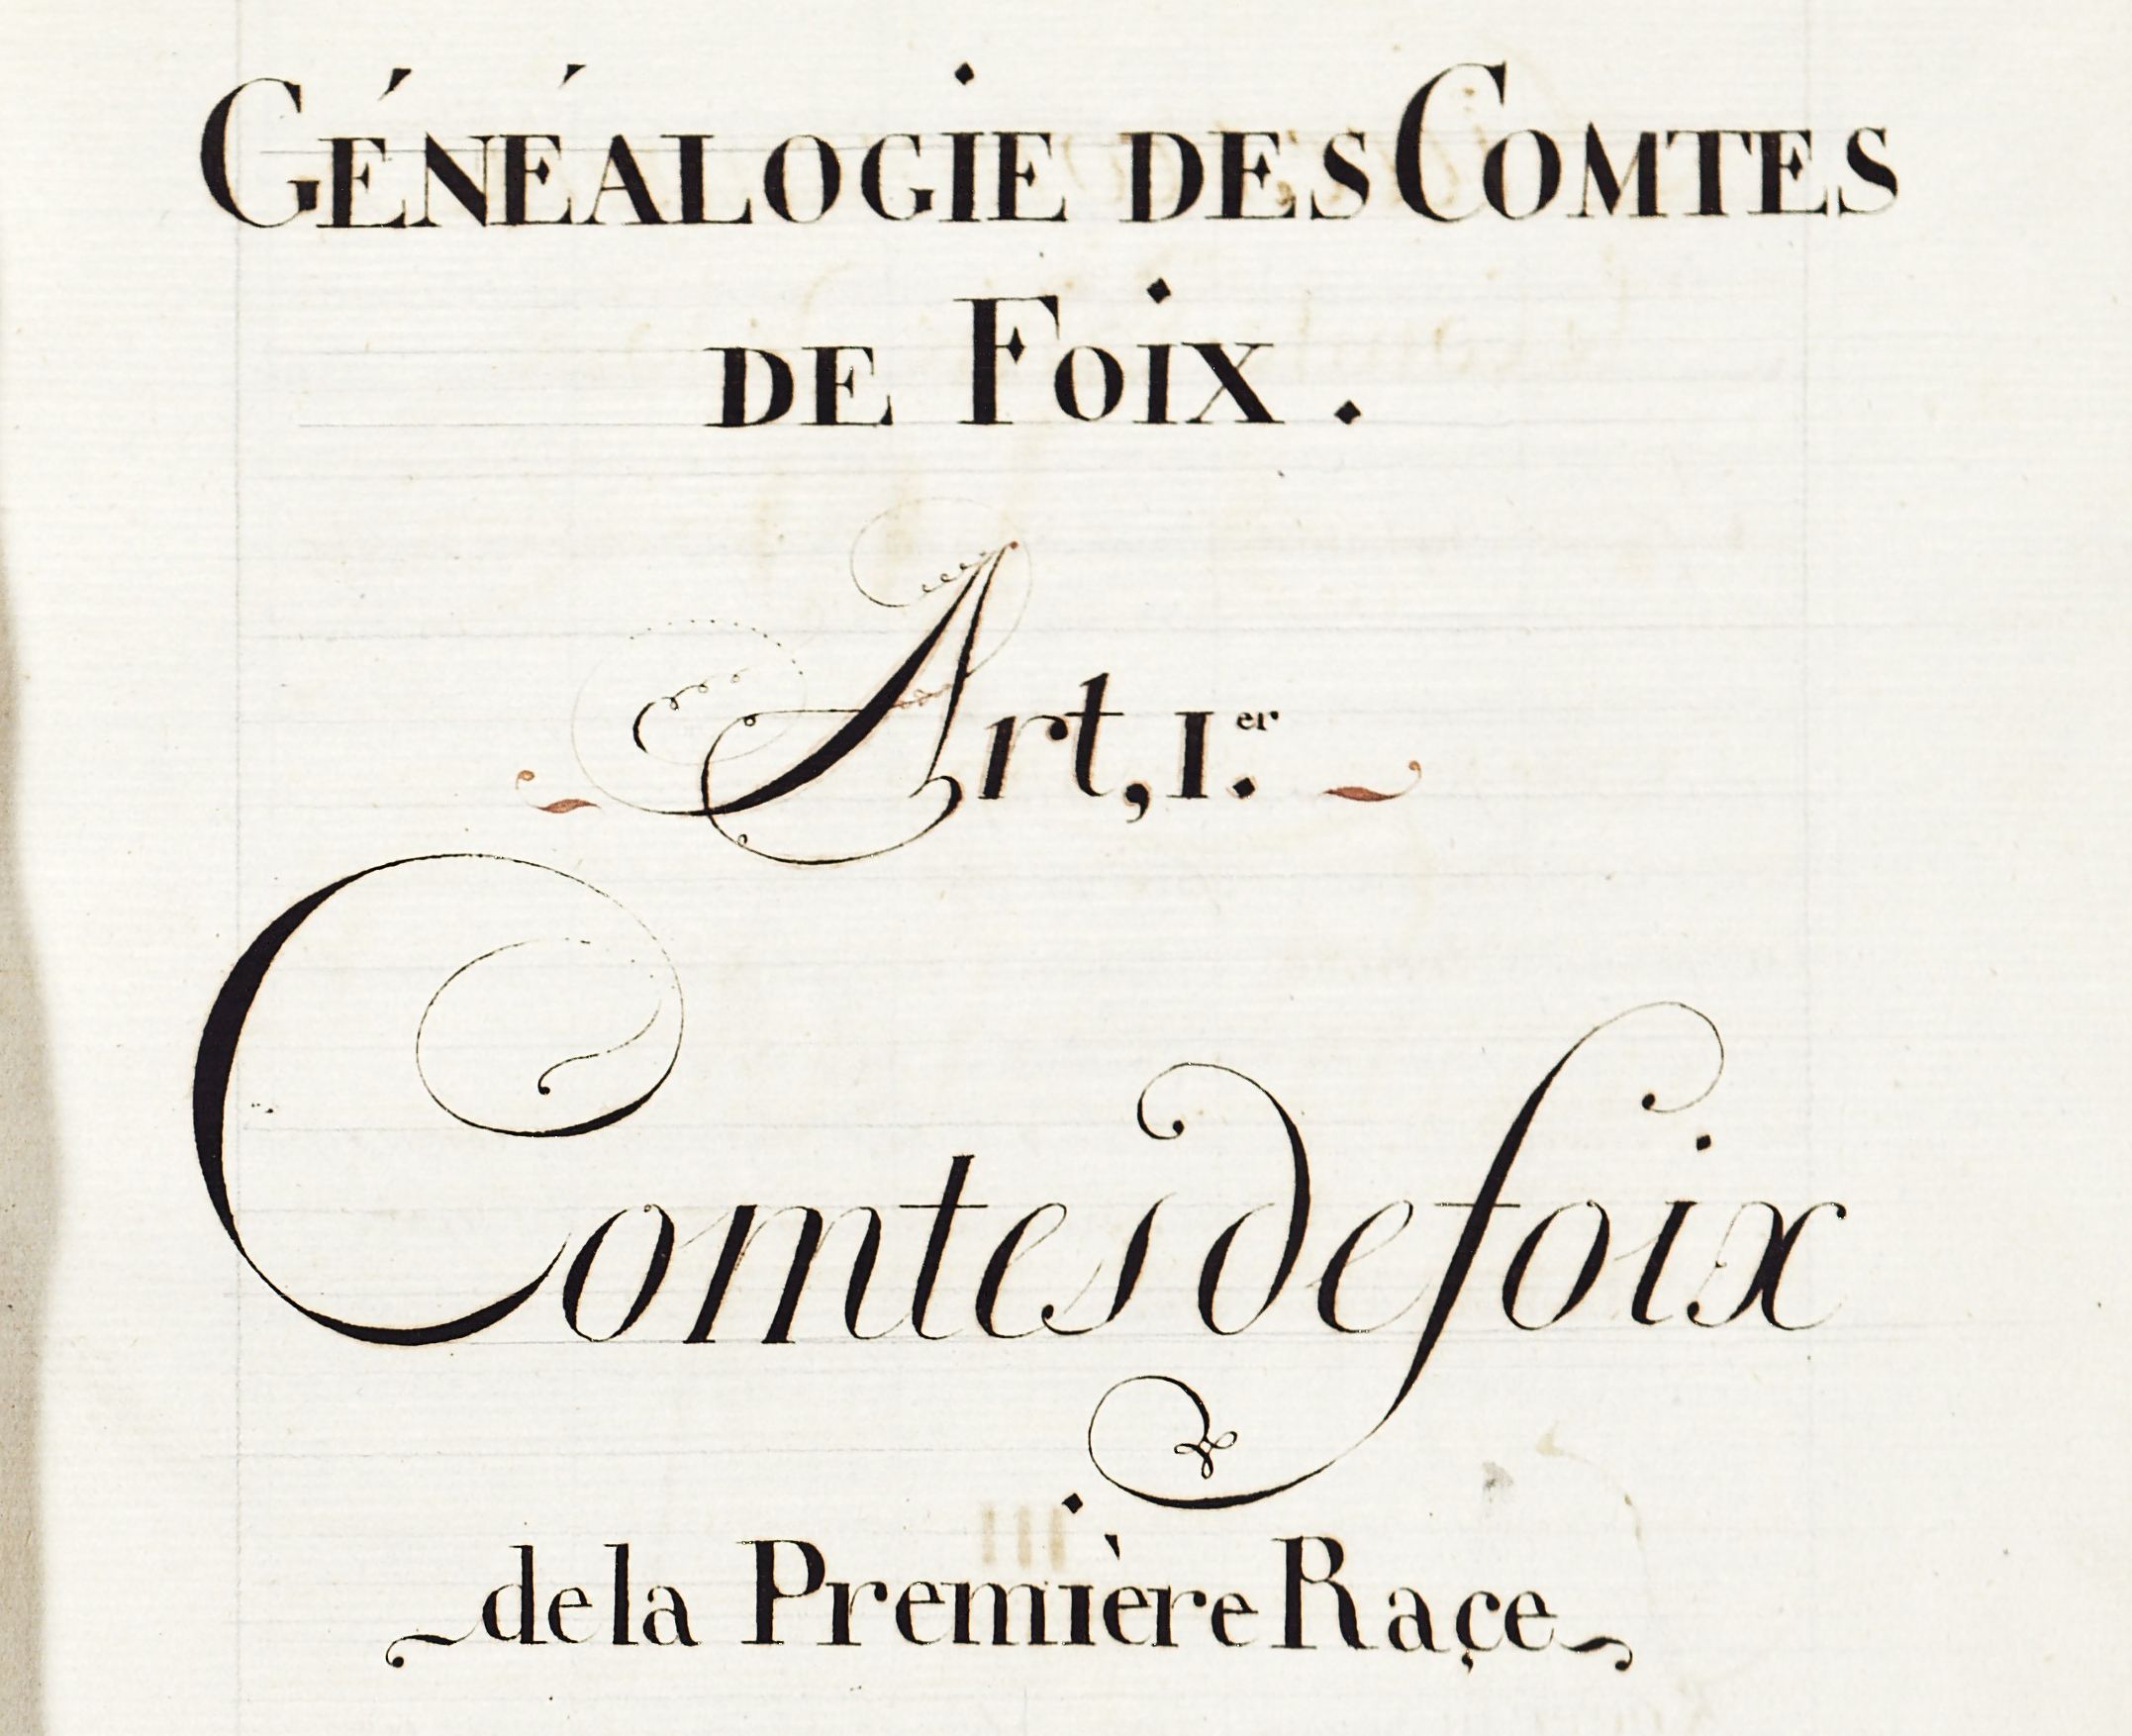 GÉNÉALOGIE DES COMTES
DE FOIX.
Art, 1.er
Comtes de foix
de la Première Raçe